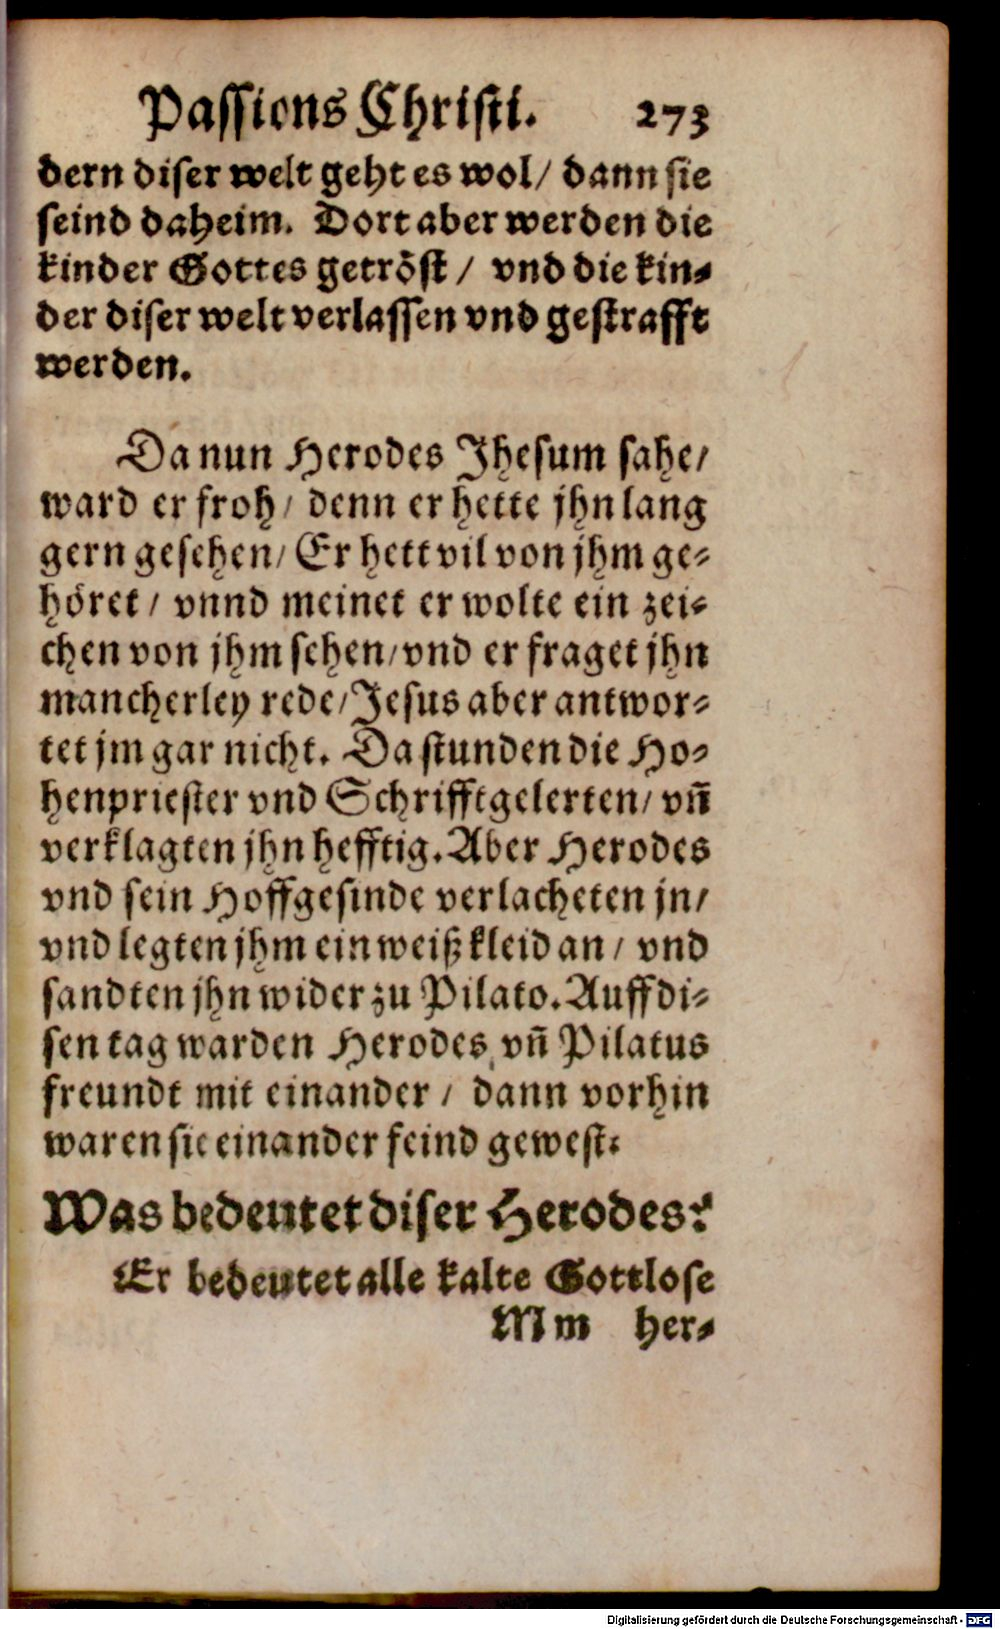 Passions Christi. 273
dern diser welt geht es wol/ dann sie
seind daheim. Dort aber werden die
kinder Gottes getröst / vnd die kin⸗
der diser welt verlassen vnd gestrafft
werden.
Da nun Herodes Jhesum sahe/
ward er froh/ denn er hette jhn lang
gern gesehen/ Er hett vil von jhm ge⸗
höret/ vnnd meinet er wolte ein zei⸗
chen von jhm sehen/ vnd er fraget jhn
mancherley rede/ Jesus aber antwor⸗
tet jm gar nicht. Da stunden die Ho⸗
henpriester vnd Schrifftgelerten/ vñ
verklagten jhn hefftig. Aber Herodes
vnd sein Hoffgesinde verlacheten jn/
vnd legten jhm ein weiß kleid an/ vnd
sandten jhn wider zu Pilato. Auff di⸗
sen tag warden Herodes vñ Pilatus
freundt mit einander / dann vorhin
waren sie einander feind gewest.
Was bedeutet diser Herodes?
Er bedeutet alle kalte Gottlose
Mm her⸗
Digitalisierung gefördert durch die Deutsche Forschungsgemeinschaft - DFG